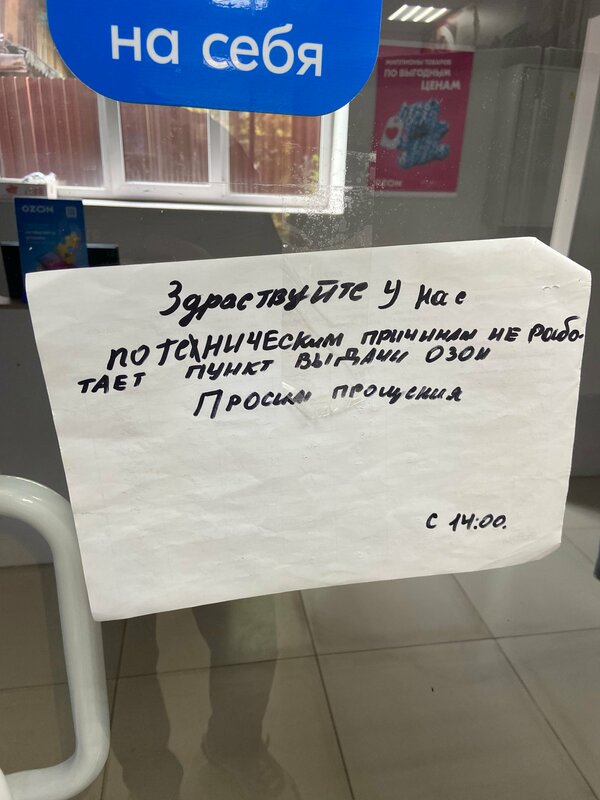 на себя
МИЛЛИОНЫ ТОВАРОВ
ПО ВЫГОДНЫМ
ЦЕНАМ
OZON
OZON
Здравствуйте у нас
по техническим причинам не рабо-
тает пункт выдачи озон
Просим прощения
с 14:00.